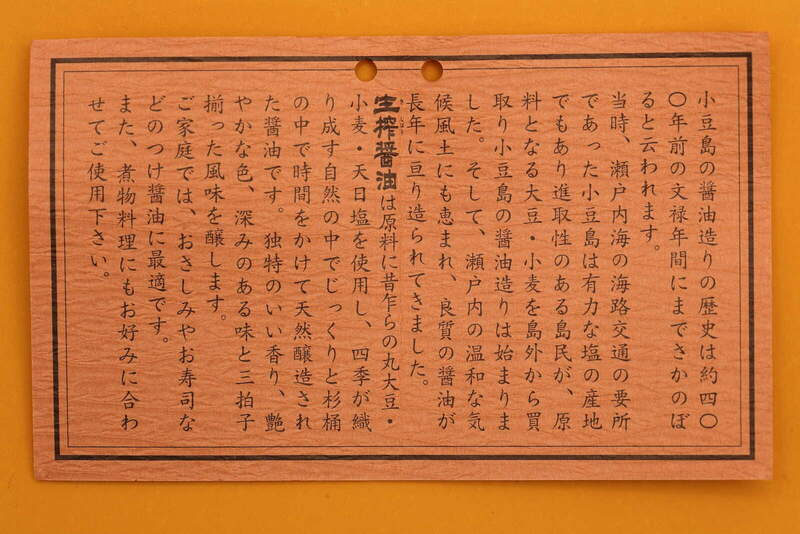 小豆島の醤油造りの歴史は約四〇
〇年前の文禄年間にまでさかのぼ
ると云われます。
当時、瀬戸内海の海路交通の要所
であった小豆島は有力な塩の産地
でもあり進取性のある島民が、原
料となる大豆・小麦を島外から買
取り小豆島の醤油造りは始まりま
した。そして、瀬戸内の温和な気
候風土にも恵まれ、良質の醤油が
長年に亘り造られてきました。
生搾醤油は原料に昔乍らの丸大豆・
小麦・天日塩を使用し、四季が織
り成す自然の中でじっくりと杉桶
の中で時間をかけて天然醸造され
た醤油です。独特のいい香り、艶
やかな色、深みのある味と三拍子
揃った風味を醸します。
ご家庭では、おさしみやお寿司な
どのつけ醤油に最適です。
また、煮物料理にもお好みに合わ
せてご使用下さい。